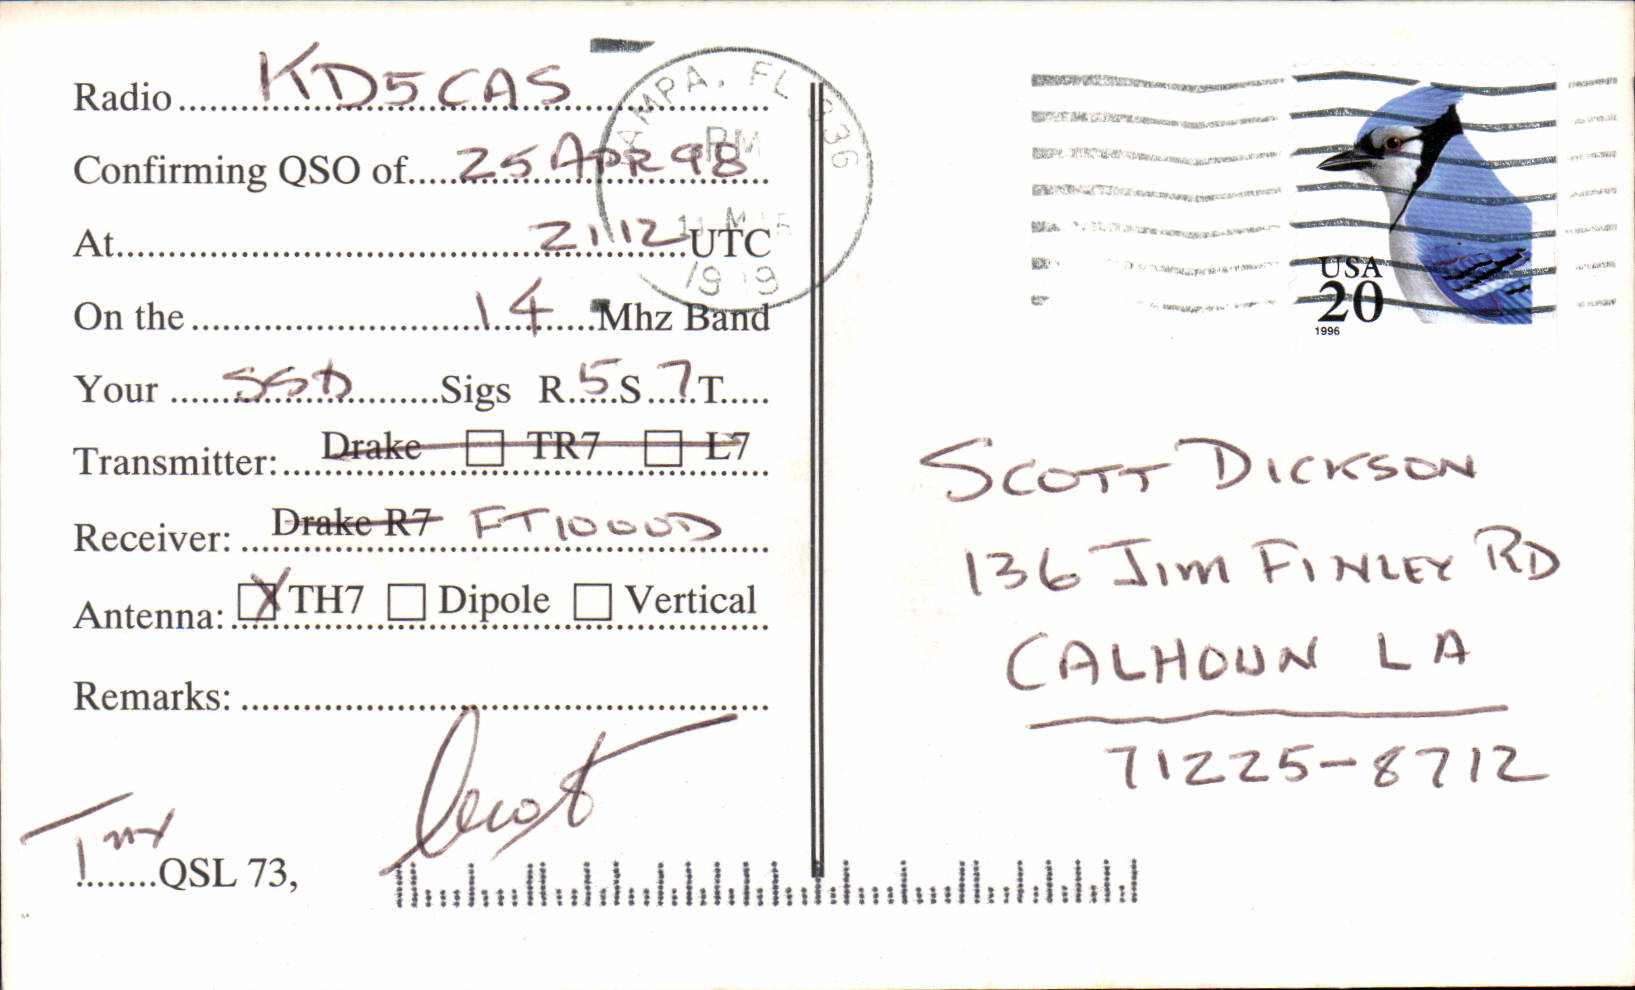 Radio KD5CAS
Confirming QSO of 25 APR 98
At 2112 UTC
On the 14 Mhz Band
Your SSB Sigs R 5 S 7 T
Transmitter: Drake TR7 L7
Receiver: Drake R7 FT1000D
Antenna: X TH7 Dipole Vertical
Remarks:
Tnx QSL 73,
TAMPA, FL 336
PM
1999
USA
20
1996
SCOTT DICKSON
136 JIM FINLEY RD
CALHOUN LA
71225-8712